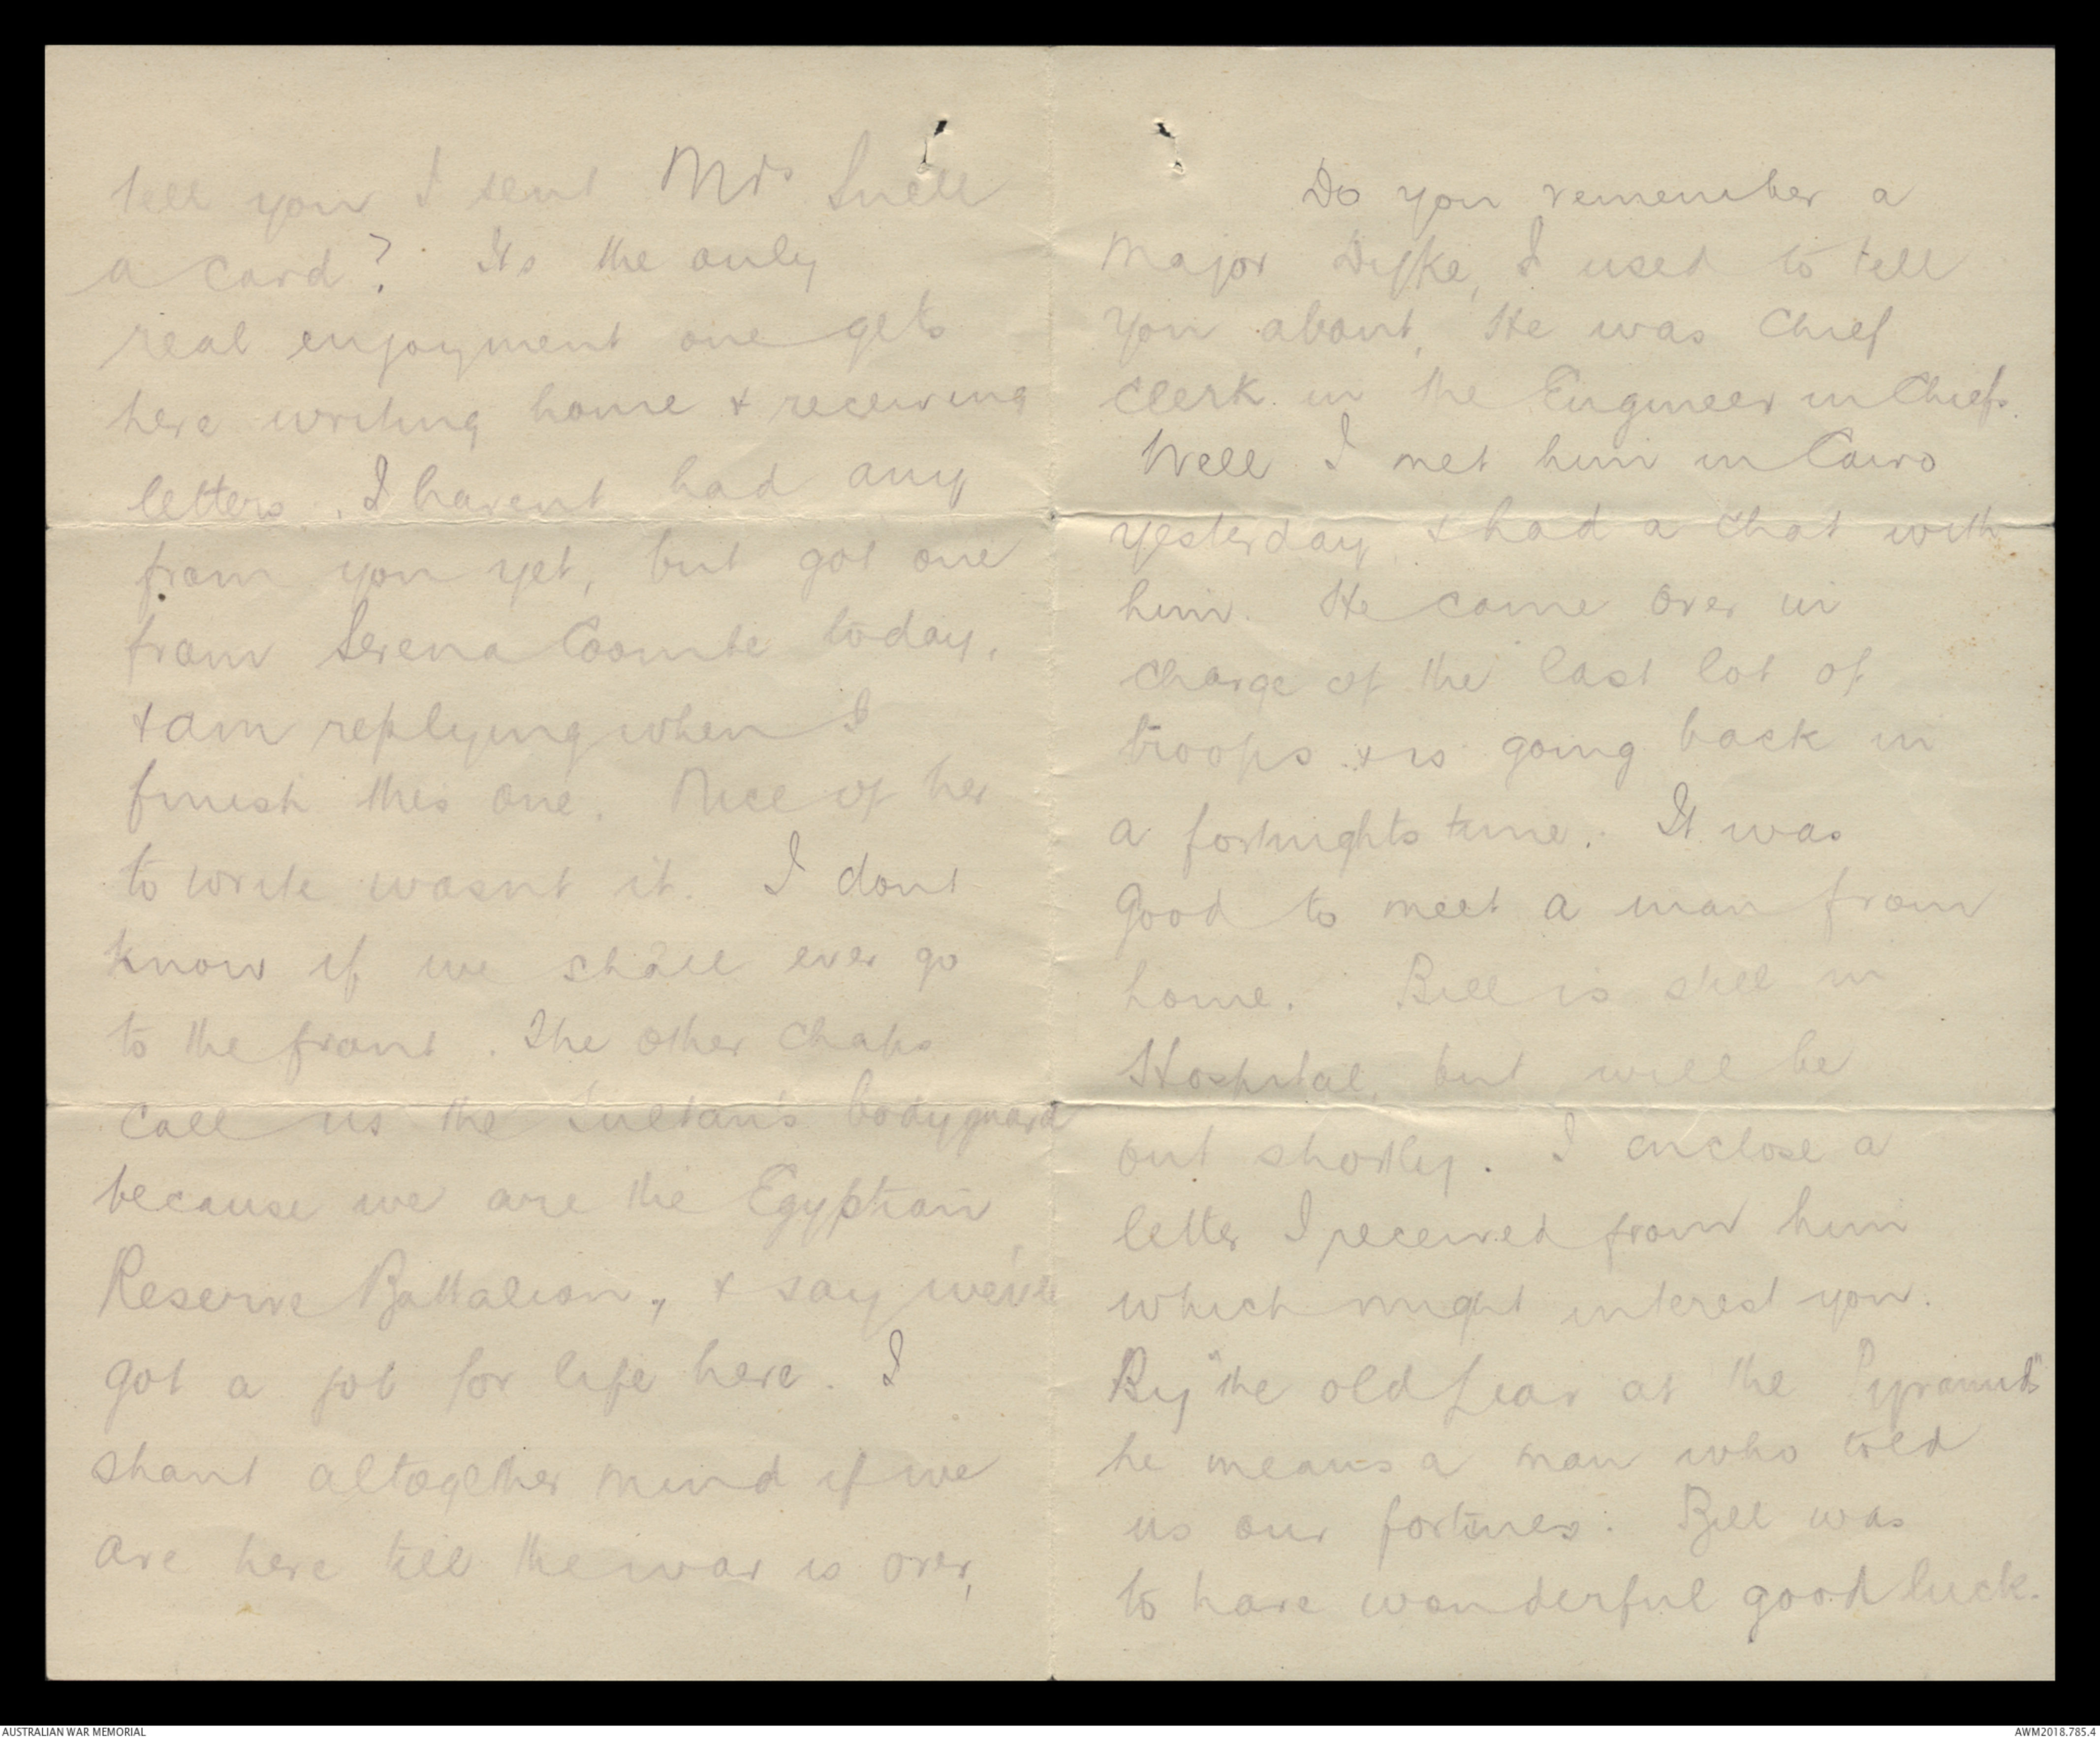 tell you I sent Mrs Snell
a card? Its the only
real enjoyment one gets
here writing home & receiving
letters. I havent had any
from you yet, but got one
from Serena Coombe today,
& am replying when I
finish this one. Nice of her
to write wasnt it. I dont
know if we shall ever go
to the front. The other chaps
call us the Sultan's bodyguard
because we are the Egyptian
Reserve Battalion, & say we've
got a job for life here. I
shant altogether mind if we
are here till the war is over,
Do you remember a
Major Dyke, I used to tell
you about, He was Chief
Clerk in the Engineer in Chiefs.
Well I met him in Cairo
yesterday & had a chat with
him. He came over in
charge of the last lot of
troops & is going back in
a fortnights time. It was
good to meet a man from
home. Bill is still in
Hospital, but will be
out shortly. I enclose a
letter I received from him
which might interest you.
By "the old Liar at the Pyramids"
he means a man who told
us our fortunes. Bill was
to have wonderful good luck.
AUSTRALIAN WAR MEMORIAL
AWM2018.785.4